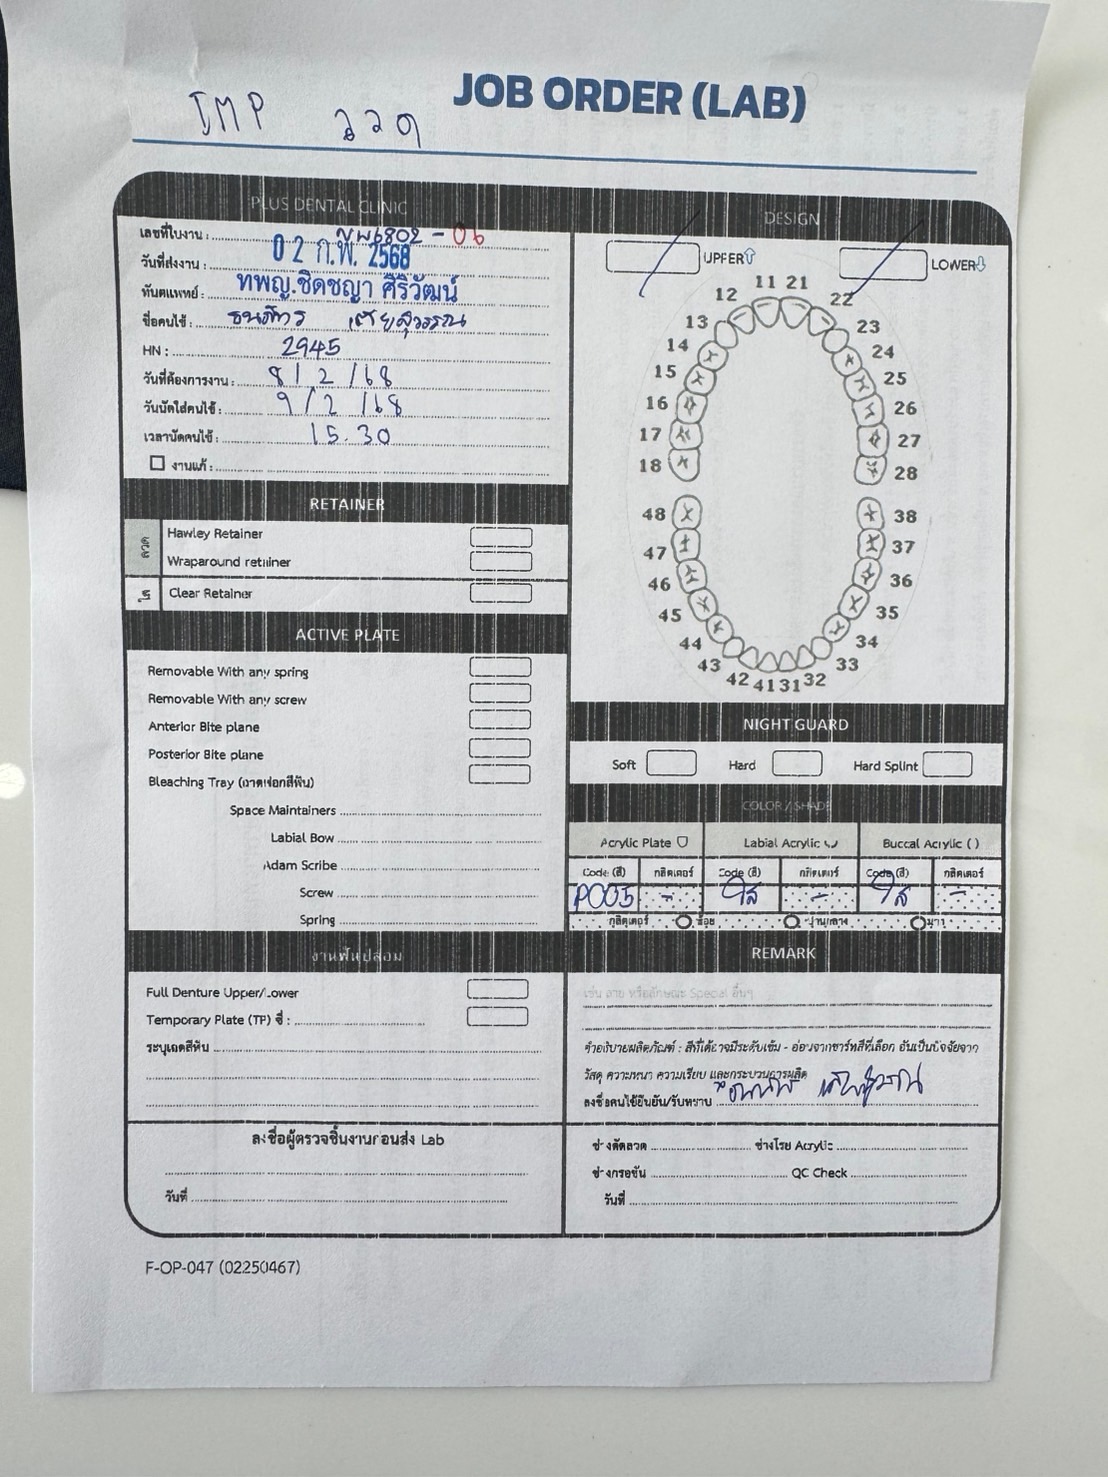 JOB ORDER (LAB)
IMP
PLUS DENTAL CLINIC
เลขที่ใบงาน : 6802 - 06
วันที่ส่งงาน : 02 ก.พ. 2568
ทันตแพทย์ : ทพญ.ชิดชญา ศิริวัฒน์
ชื่อคนไข้ :
HN : 2945
วันที่ต้องการงาน : 8/2/68
วันนัดใส่คนไข้ : 9/2/68
เวลานัดคนไข้ : 15.30
งานแก้ :
RETAINER
ลวด
Hawley Retainer
Wraparound retainer
ใส
Clear Retainer
ACTIVE PLATE
Removable With any spring
Removable With any screw
Anterior Bite plane
Posterior Bite plane
Bleaching Tray (ถาดฟอกสีฟัน)
Space Maintainers
Labial Bow
Adam Scribe
Screw
Spring
งานฟันปลอม
Full Denture Upper/Lower
Temporary Plate (TP) ซี่ :
ระบุเฉดสีฟัน
ลงชื่อผู้ตรวจชิ้นงานก่อนส่ง Lab
วันที่
DESIGN
UPPER
LOWER
11 21
12 22
13 23
14 24
15 25
16 26
17 27
18 28
48 38
47 37
46 36
45 35
44 34
43 33
42 41 31 32
NIGHT GUARD
Soft Hard Hard Splint
COLOR / SHADE
Acrylic Plate Labial Acrylic Buccal Acrylic ( )
Code (สี) กลิตเตอร์ Code (สี) กลิตเตอร์ Code (สี) กลิตเตอร์
P005 - ใส - ใส -
กลิตเตอร์ น้อย ปานกลาง มาก
REMARK
เช่น ลาย หรือลักษณะ Special อื่นๆ
คำอธิบายผลิตภัณฑ์ : สีที่ได้อาจมีระดับเข้ม - อ่อนจากชาร์ทสีที่เลือก อันเป็นปัจจัยจาก
วัสดุ ความหนา ความเรียบ และกระบวนการผลิต
ลงชื่อคนไข้ยืนยัน/รับทราบ
ช่างดัดลวด ช่างโรย Acrylic
ช่างกรอขัด QC Check
วันที่
F-OP-047 (02250467)